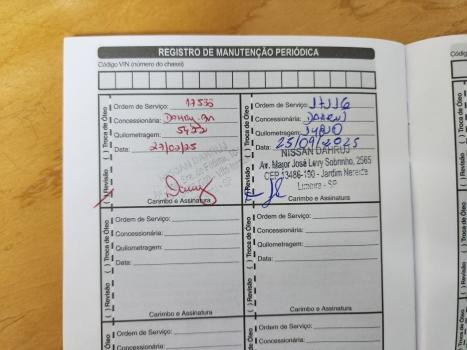 REGISTRO DE MANUTENÇÃO PERIÓDICA
Código VIN (número do chassi)
( ) Revisão ( ) Troca de Óleo
Ordem de Serviço:
Concessionária:
Quilometragem:
Data: 27/02/25
Carimbo e Assinatura
( ) Revisão ( ) Troca de Óleo
Ordem de Serviço: 17116
Concessionária:
Quilometragem:
Data: 25/09/2025
NISSAN DAHRUJ
Av. Major José Levy Sobrinho, 2565
CEP 13486-190 - Jardim Nereide
Limeira - SP
Carimbo e Assinatura
( ) Revisão ( ) Troca de Óleo
Ordem de Serviço:
Concessionária:
Quilometragem:
Data:
Carimbo e Assinatura
( ) Revisão ( ) Troca de Óleo
Ordem de Serviço:
Concessionária:
Quilometragem:
Data:
Carimbo e Assinatura
Troca de Óleo
Ordem de Serviço:
Concessionária:
Troca de Óleo
Ordem de Serviço:
Concessionária: